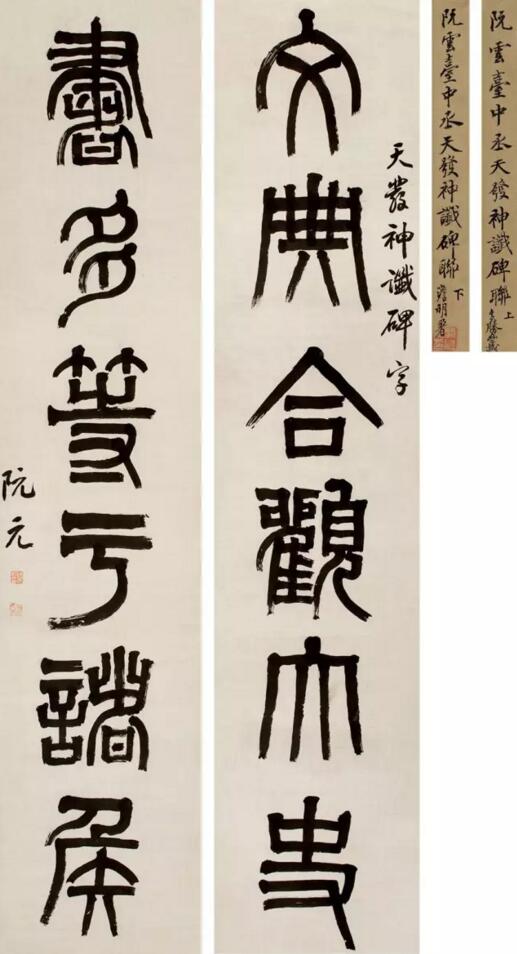 阮雲臺中丞天發神讖碑聯 上
阮雲臺中丞天發神讖碑聯 下
天發神讖碑字
文典合觀大史
書多等亏諸侯
阮元